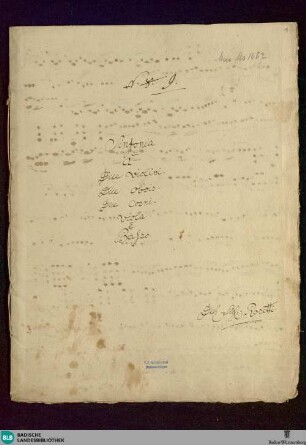 Mus. Ms. 1682
N. 9.
Sinfonia
à
Due Violini
Due Oboe
Due Corni
Viola
e
Basso
Del Sig. Rosetti
BLB BADISCHE
LANDESBIBLIOTHEK
Baden-Württemberg